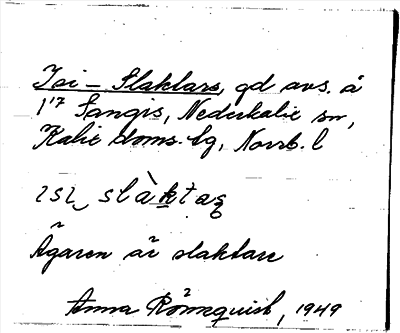 Isi - Slaktars, gd avs. å
1¹⁷ Sangis, Nederkalix sn,
Kalix doms. lg, Norrb. l
ɪsɪ slàktaʂ
Ägaren är slaktare
Anna Rönnquist, 1949